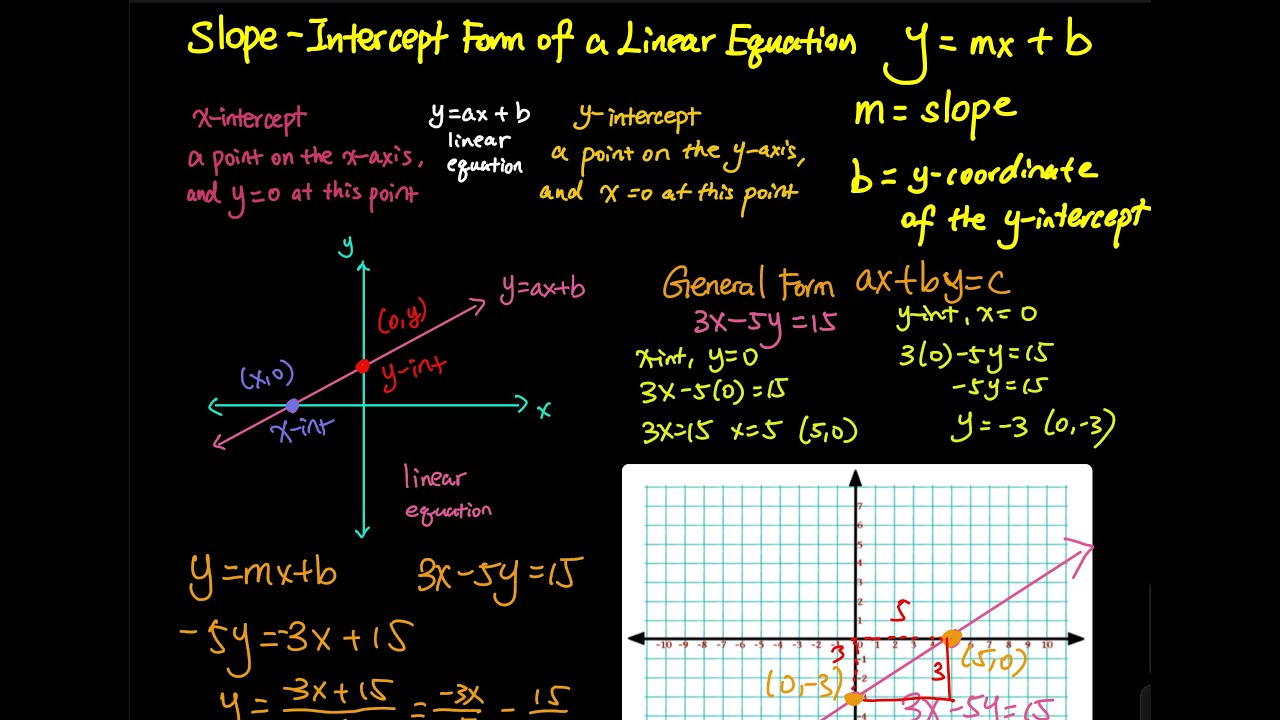 Slope-Intercept Form of a Linear Equation y = mx + b
m = slope
b = y-coordinate
of the y-intercept
x-intercept
a point on the x-axis,
and y=0 at this point
y=ax+b
linear
equation
y-intercept
a point on the y-axis,
and x=0 at this point
y
y=ax+b
(0,y)
y-int
(x,0)
x-int
x
linear
equation
General Form ax+by=c
3x-5y=15
x-int, y=0
3x-5(0)=15
3x=15 x=5 (5,0)
y-int, x=0
3(0)-5y=15
-5y=15
y=-3 (0,-3)
y=mx+b 3x-5y=15
-5y=-3x+15
y = -3x+15 = -3x - 15
7
6
5
4
3
2
1
5
-10 -9 -8 -7 -6 -5 -4 -3 -2 -1 0 1 2 3 4 5 6 7 8 9 10
3
-1
(5,0)
3
-2
(0,-3)
3x-5y=15
-4